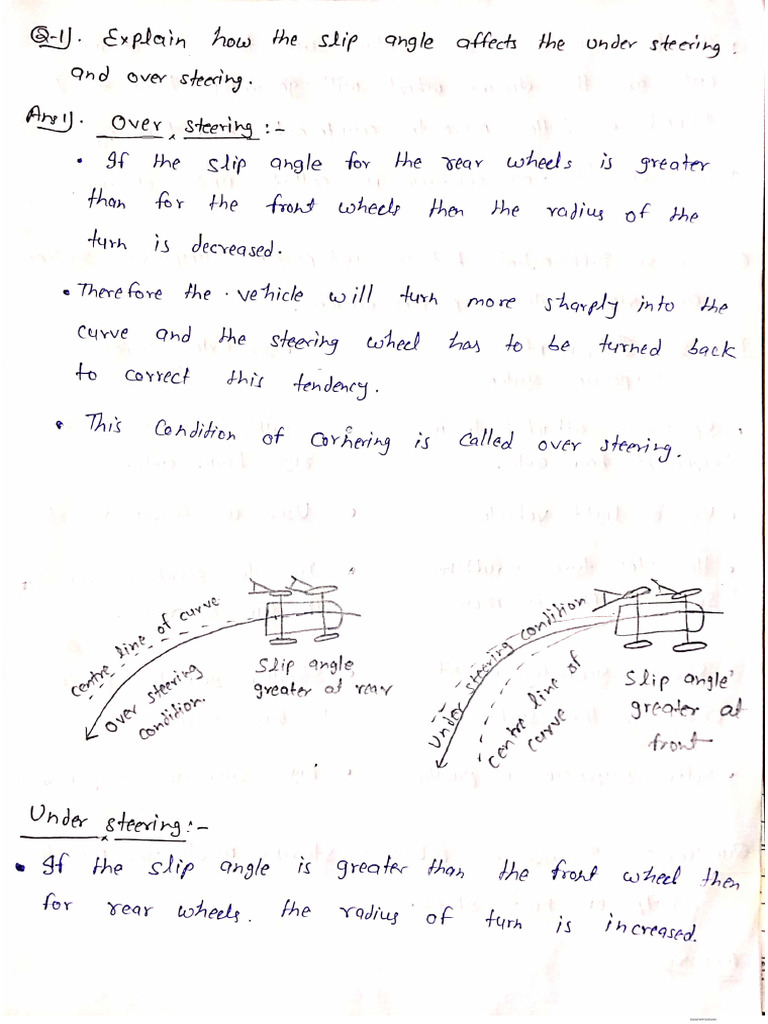 Q-1). Explain how the slip angle affects the under steering.
and over steering.
Ans1). Over steering :-
• If the slip angle for the rear wheels is greater
than for the front wheels then the radius of the
turn is decreased.
• Therefore the vehicle will turn more sharply into the
curve and the steering wheel has to be turned back
to correct this tendency.
• This Condition of Cornering is Called over steering.
centre line of curve
Over steering
condition.
Slip angle
greater at rear
Under steering condition
centre line of
curve
Slip angle
greater at
front
Under steering :-
• If the slip angle is greater than the front wheel then
for rear wheels. the radius of turn is increased.